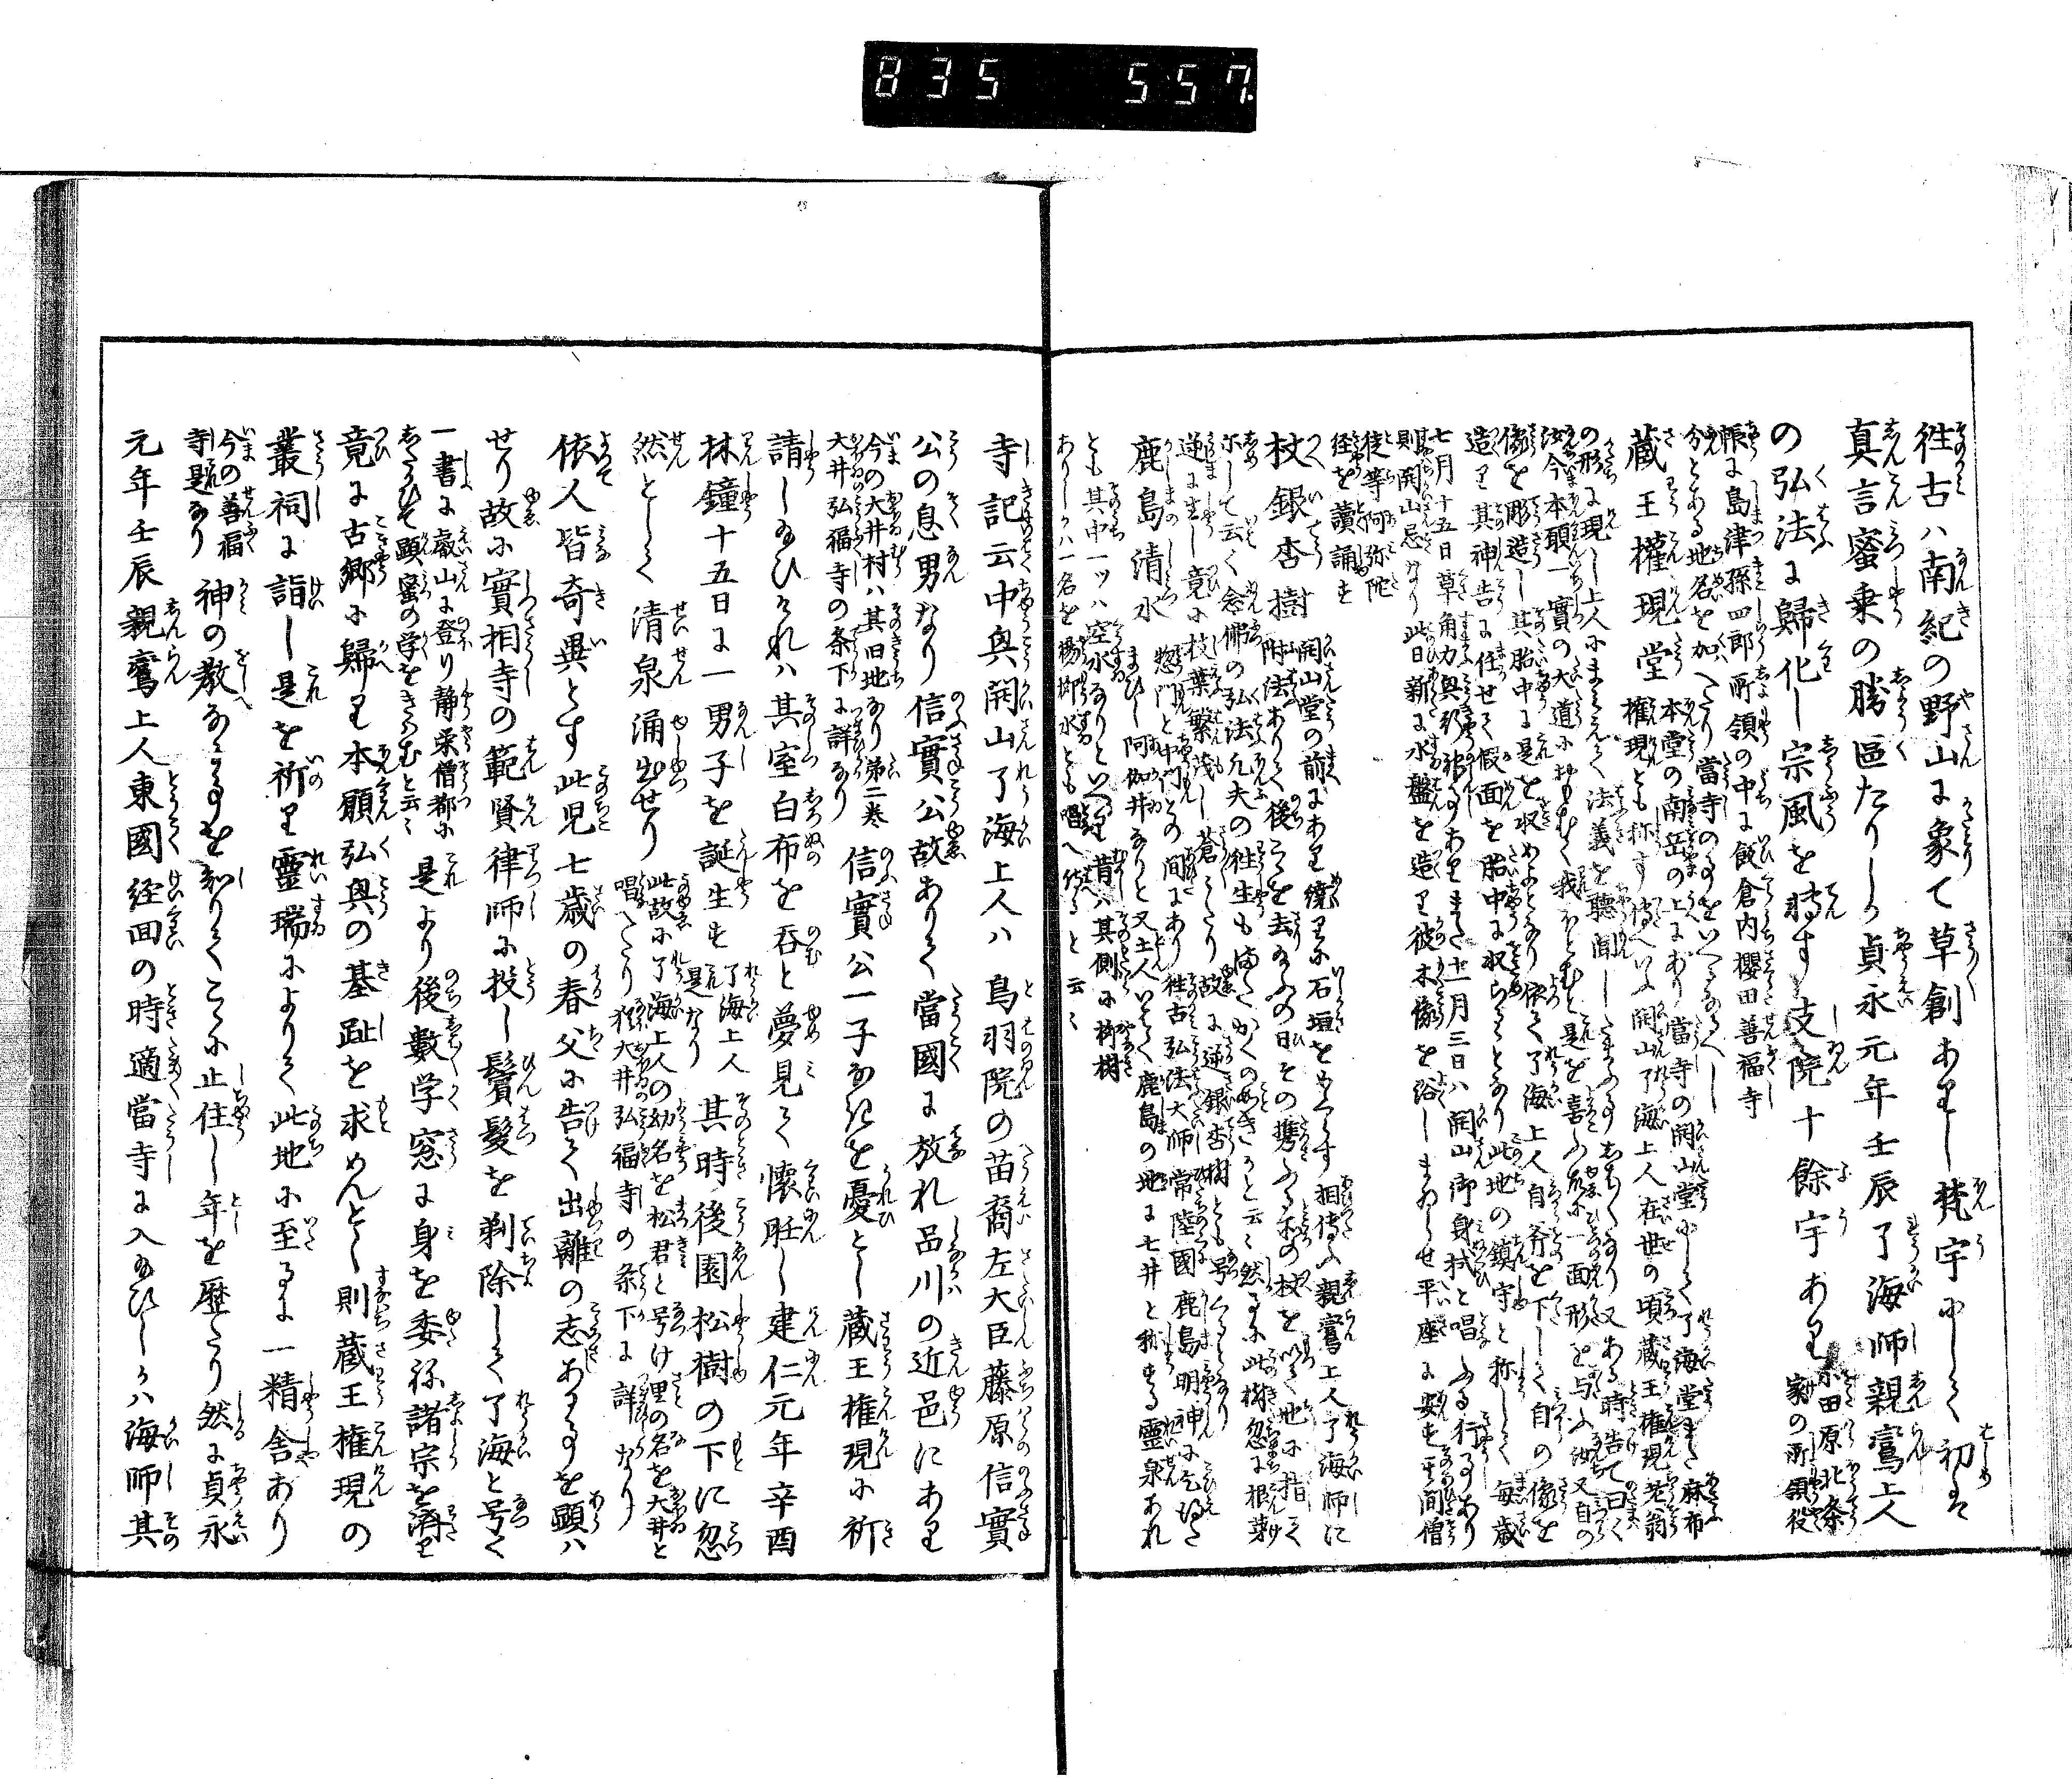 835 557
往古ハ南紀の野山に象て草創ありし梵宇にして初は
真言蜜乗の勝區たりしか貞永元年壬辰了海師親鸞上人
の弘法に歸化し宗風を轉す支院十餘宇あり
小田原北条
家の所領役
帳に島津孫四郎所領の中に飯倉内櫻田善福寺
分とある地名を加へたり當寺のことをいへるなるへし
蔵王權現堂
本堂の南岳の上にあり當寺の開山堂にして了海堂また麻布
權現とも称す傳へいふ開山了海上人在世の頃蔵王権現老翁
の形に現し上人にまみえて法義を聽聞したまふことしはしはなり又ある時告て曰く
汝今本願一實の大道におもむく我もとむと是を喜ふ故に一面形を与ふ汝又自の
像を彫造し其胎中に是を収めよとなり依て了海上人自斧を下して自の像を
造り其神告に任せて假面を胎中に収らるとなり此地の鎮守と称して毎歳
七月十五日草角力興行ありまた十一月三日ハ開山御身拭と唱ふる行事あり
則開山忌なり此日新に水盤を造り彼木像を浴しまゐらせ平座に安す其間僧
徒等阿弥陀
経を讀誦す
杖銀杏樹
開山堂の前にあり繞りに石垣をめくらす相傳ふ親鸞上人了海師に
附法ありて後こゝを去給ふの日その携ふ所の杖を以て地に指て
示して云く念佛の弘法凡夫の往生もまたかくのことくかと云々然るに此樹忽に根芽
逆に生し竟に枝葉繁茂し蒼々たり故に逆銀杏樹とも号くるとなり
鹿島清水
惣門と中門との間にあり往古弘法大師常陸國鹿島明神に乞得
まひし阿伽井なりと又土人いひて鹿島の地に七井と称する霊泉あれ
とも其中一ッハ空水なりといへり昔ハ其側に柳樹
ありしかハ一名を楊柳水とも唱へ侍ると云々
寺記云中興開山了海上人ハ鳥羽院の苗裔左大臣藤原信實
公の息男なり信實公故ありて當國に放れ品川の近邑にあり
今の大井村ハ其旧地なり第二巻
大井弘福寺の条下に詳なり
信實公一子なきを憂とし蔵王権現に祈
請し給ひけれハ其室白布を呑と夢見て懐胎し建仁元年辛酉
林鐘十五日に一男子を誕生す
了海上人
是なり
其時後園松樹の下に忽
然として清泉涌出せり
此故に了海上人の幼名を松君と号け里の名を大井と
唱へたり猶大井弘福寺の条下に詳なり
依人皆奇異とす此児七歳の春父に告て出離の志あることを顕ハ
せり故に實相寺の範賢律師に投し鬢髪を剃除して了海と号く
一書に叡山に登り静栄僧都に
したかひて顕蜜の学をきはむと云々
是より後數学窓に身を委ね諸宗を濟り
竟に古郷に歸り本願弘興の基趾を求めんとし則蔵王権現の
叢祠に詣し是を祈り靈瑞によりて此地に至るに一精舎あり
今の善福
寺是なり
神の教なることを知りてこゝに止住し年を歴たり然に貞永
元年壬辰親鸞上人東國経回の時適當寺に入給ひしかハ海師其